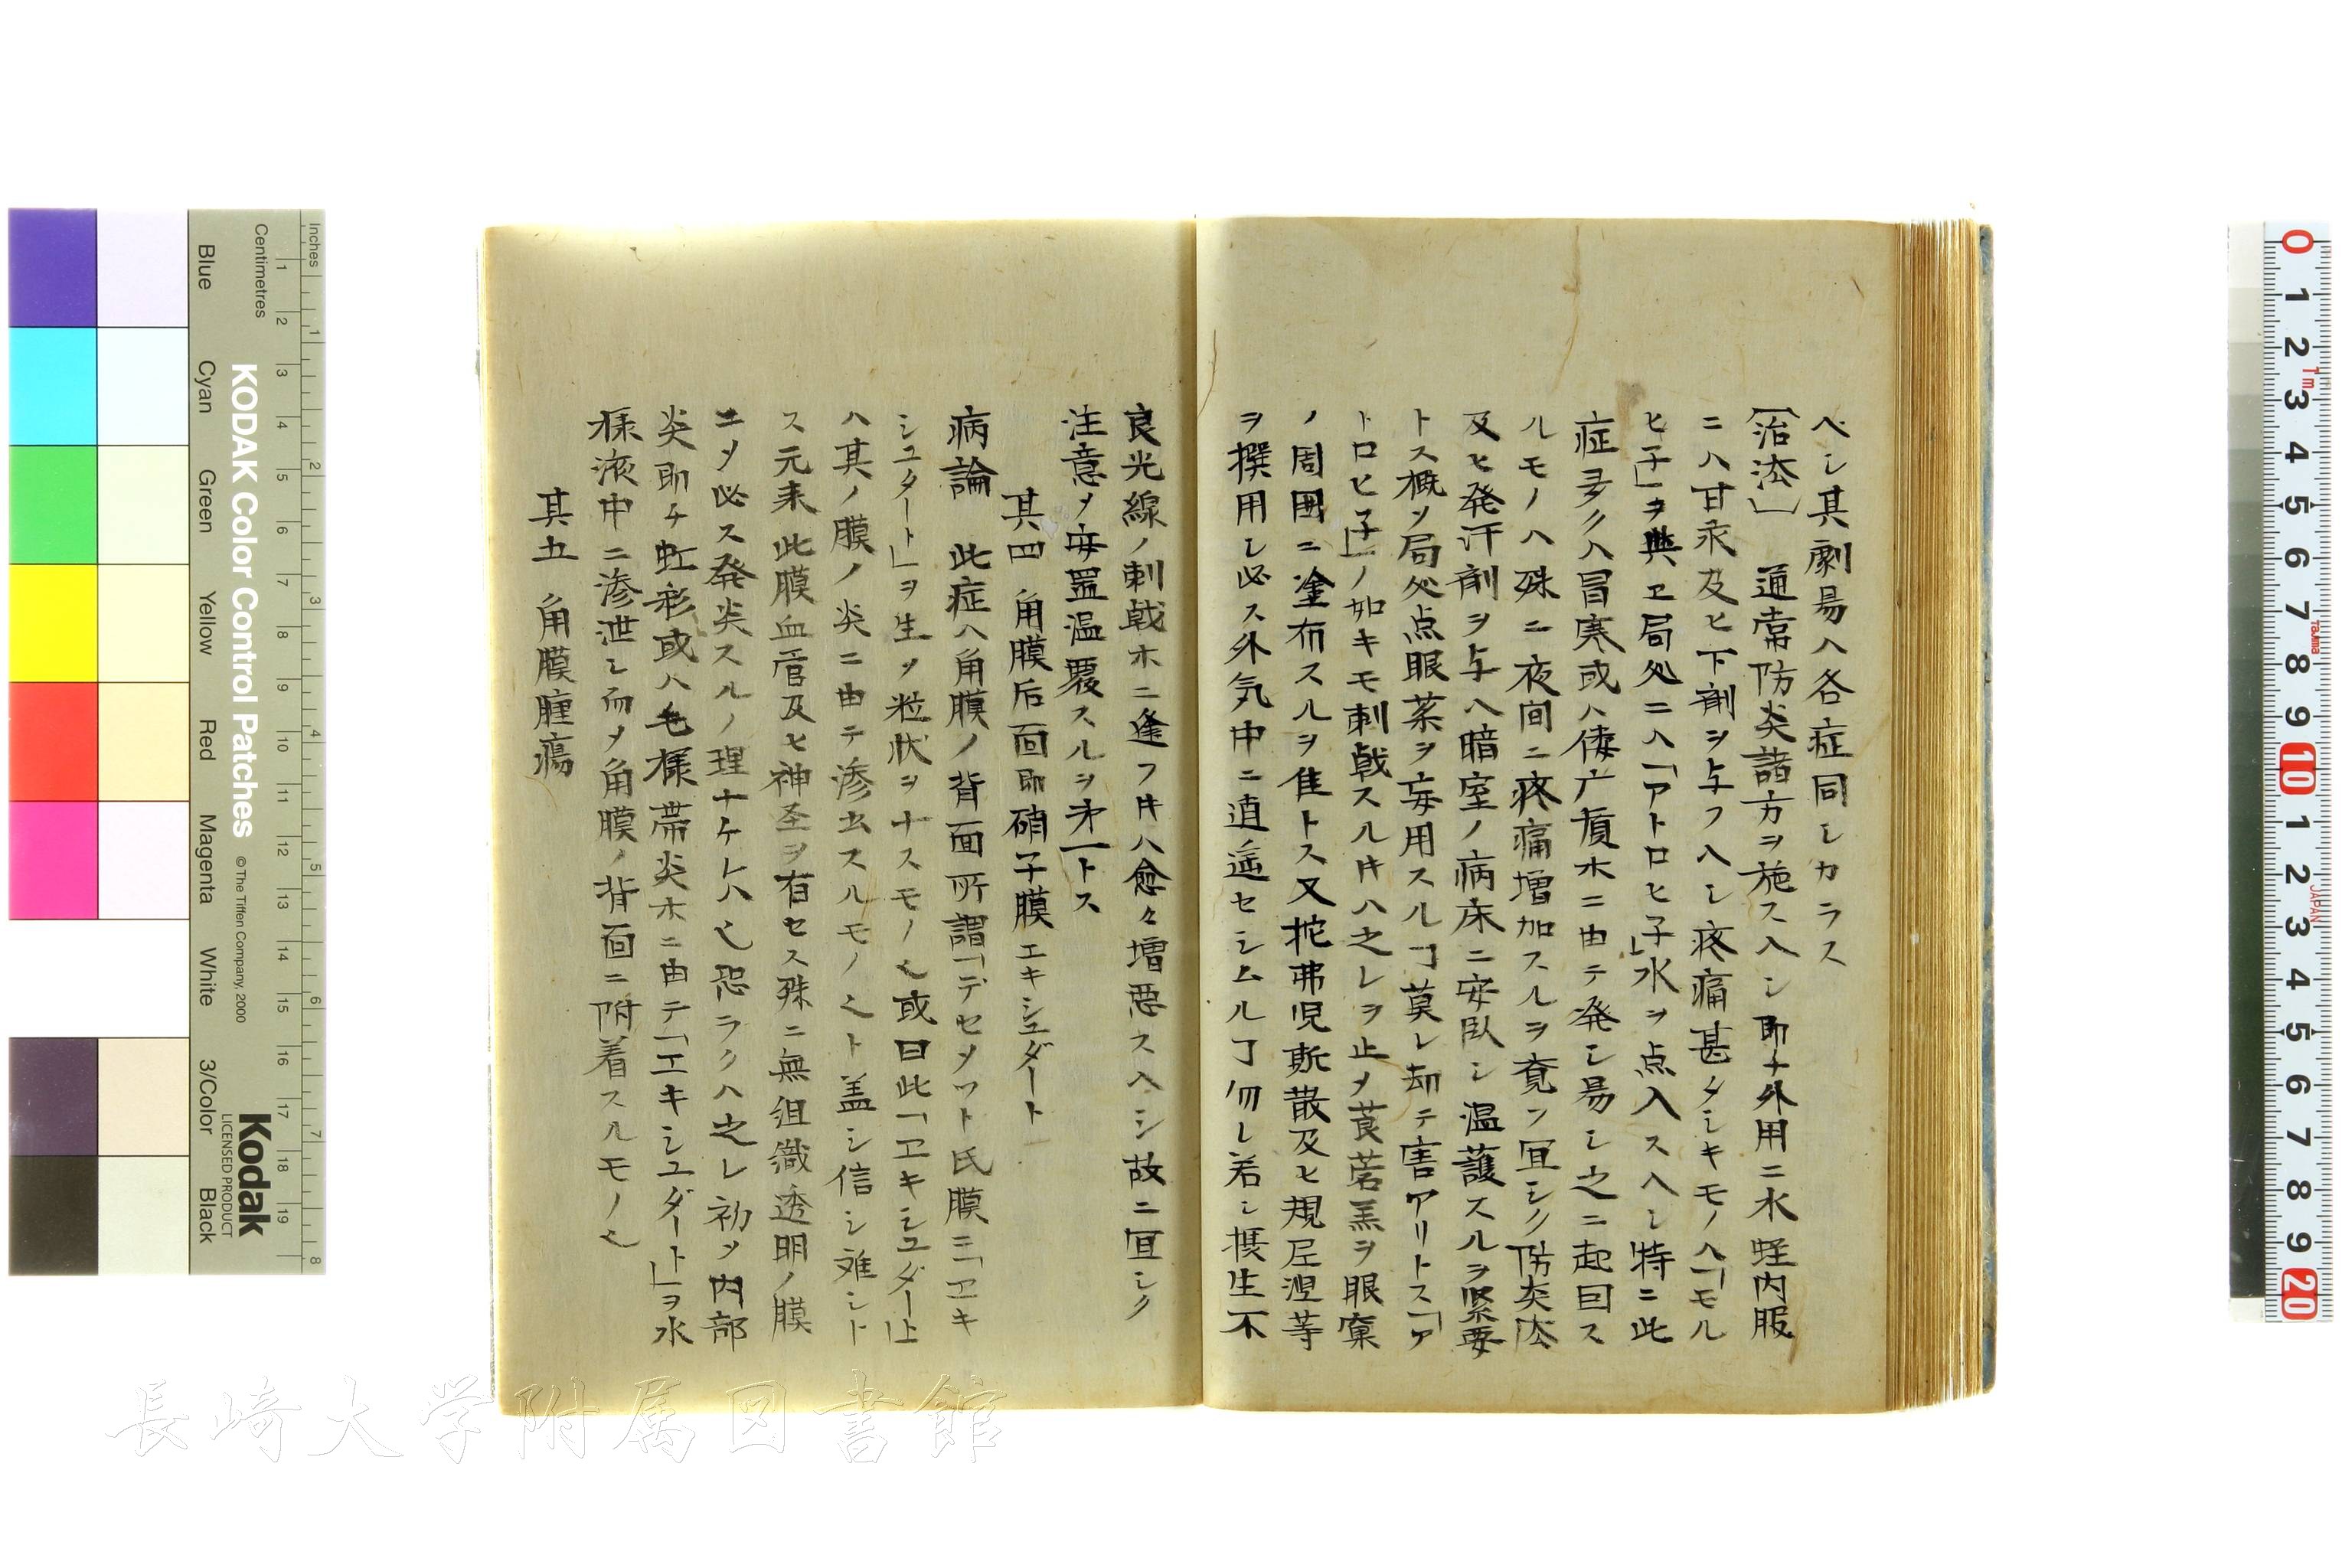 ベシ其劇易ハ各症同シカラス
〔治法〕　通常防炎諸方ヲ施スヘシ即チ外用ニ水蛭内服
ニハ甘汞及ヒ下剤ヲ与フヘシ疼痛甚タシキモノハ「モル
ヒ子」ヲ與ヱ局処ニハ「アトロヒ子」水ヲ点入スヘシ特ニ此
症多クハ冒寒或ハ僂麻質ホニ由テ発シ易シ之ニ起因ス
ルモノハ殊ニ夜间ニ疼痛増加スルヲ覚フ宜シク防炎法
及ヒ発汗剤ヲ与ヘ暗室ノ病床ニ安臥シ温護スルヲ緊要
トス概ソ局処点眼薬ヲ妄用スルヿ莫レ却テ害アリトス「ア
トロヒ子」ノ如キモ刺戟スルキハ之レヲ止メ莨菪羔ヲ眼窠
ノ周囲ニ塗布スルヲ隹トス又抱弗児斯散及ヒ規尼涅等
ヲ撰用シ必ス外気中ニ逍遥セシムルヿ勿レ若シ摂生不
良光線ノ刺戟ホニ逢フキハ愈々増悪スヘシ故ニ宜シク
注意メ安置温覆スルヲ㐧一トス
其四　角膜后面即硝子膜エキシュダート
病論　此症ハ角膜ノ背面所謂「デセメット氏膜ニ「エキ
シュタート」ヲ生メ粒状ヲナスモノ也或曰此「エキシュダート」
ハ其ノ膜ノ炎ニ由テ滲出スルモノ也ト盖シ信シ难シト
ス元来此膜血管及ヒ神圣ヲ有セス殊ニ無組織透明ノ膜
ニメ必ス発炎スルノ理ナケレハ也恐ラクハ之レ初メ内部
炎即チ虹彩或ハ毛様帯炎ホニ由テ「エキシユダート」ヲ水
様液中ニ滲泄シ而メ角膜ノ背面ニ附着スルモノ也
其五　角膜腫瘍
Inches
Centimetres
KODAK Color Control Patches
© The Tiffen Company, 2000
Kodak
LICENSED PRODUCT
Blue
Cyan
Green
Yellow
Red
Magenta
White
3/Color
Black
1 2 3 4 5 6 7 8
1 2 3 4 5 6 7 8 9 10 11 12 13 14 15 16 17 18 19
0 1 2 3 4 5 6 7 8 9 10 1 2 3 4 5 6 7 8 9 20
Tajima
JAPAN
長崎大学附属図書館